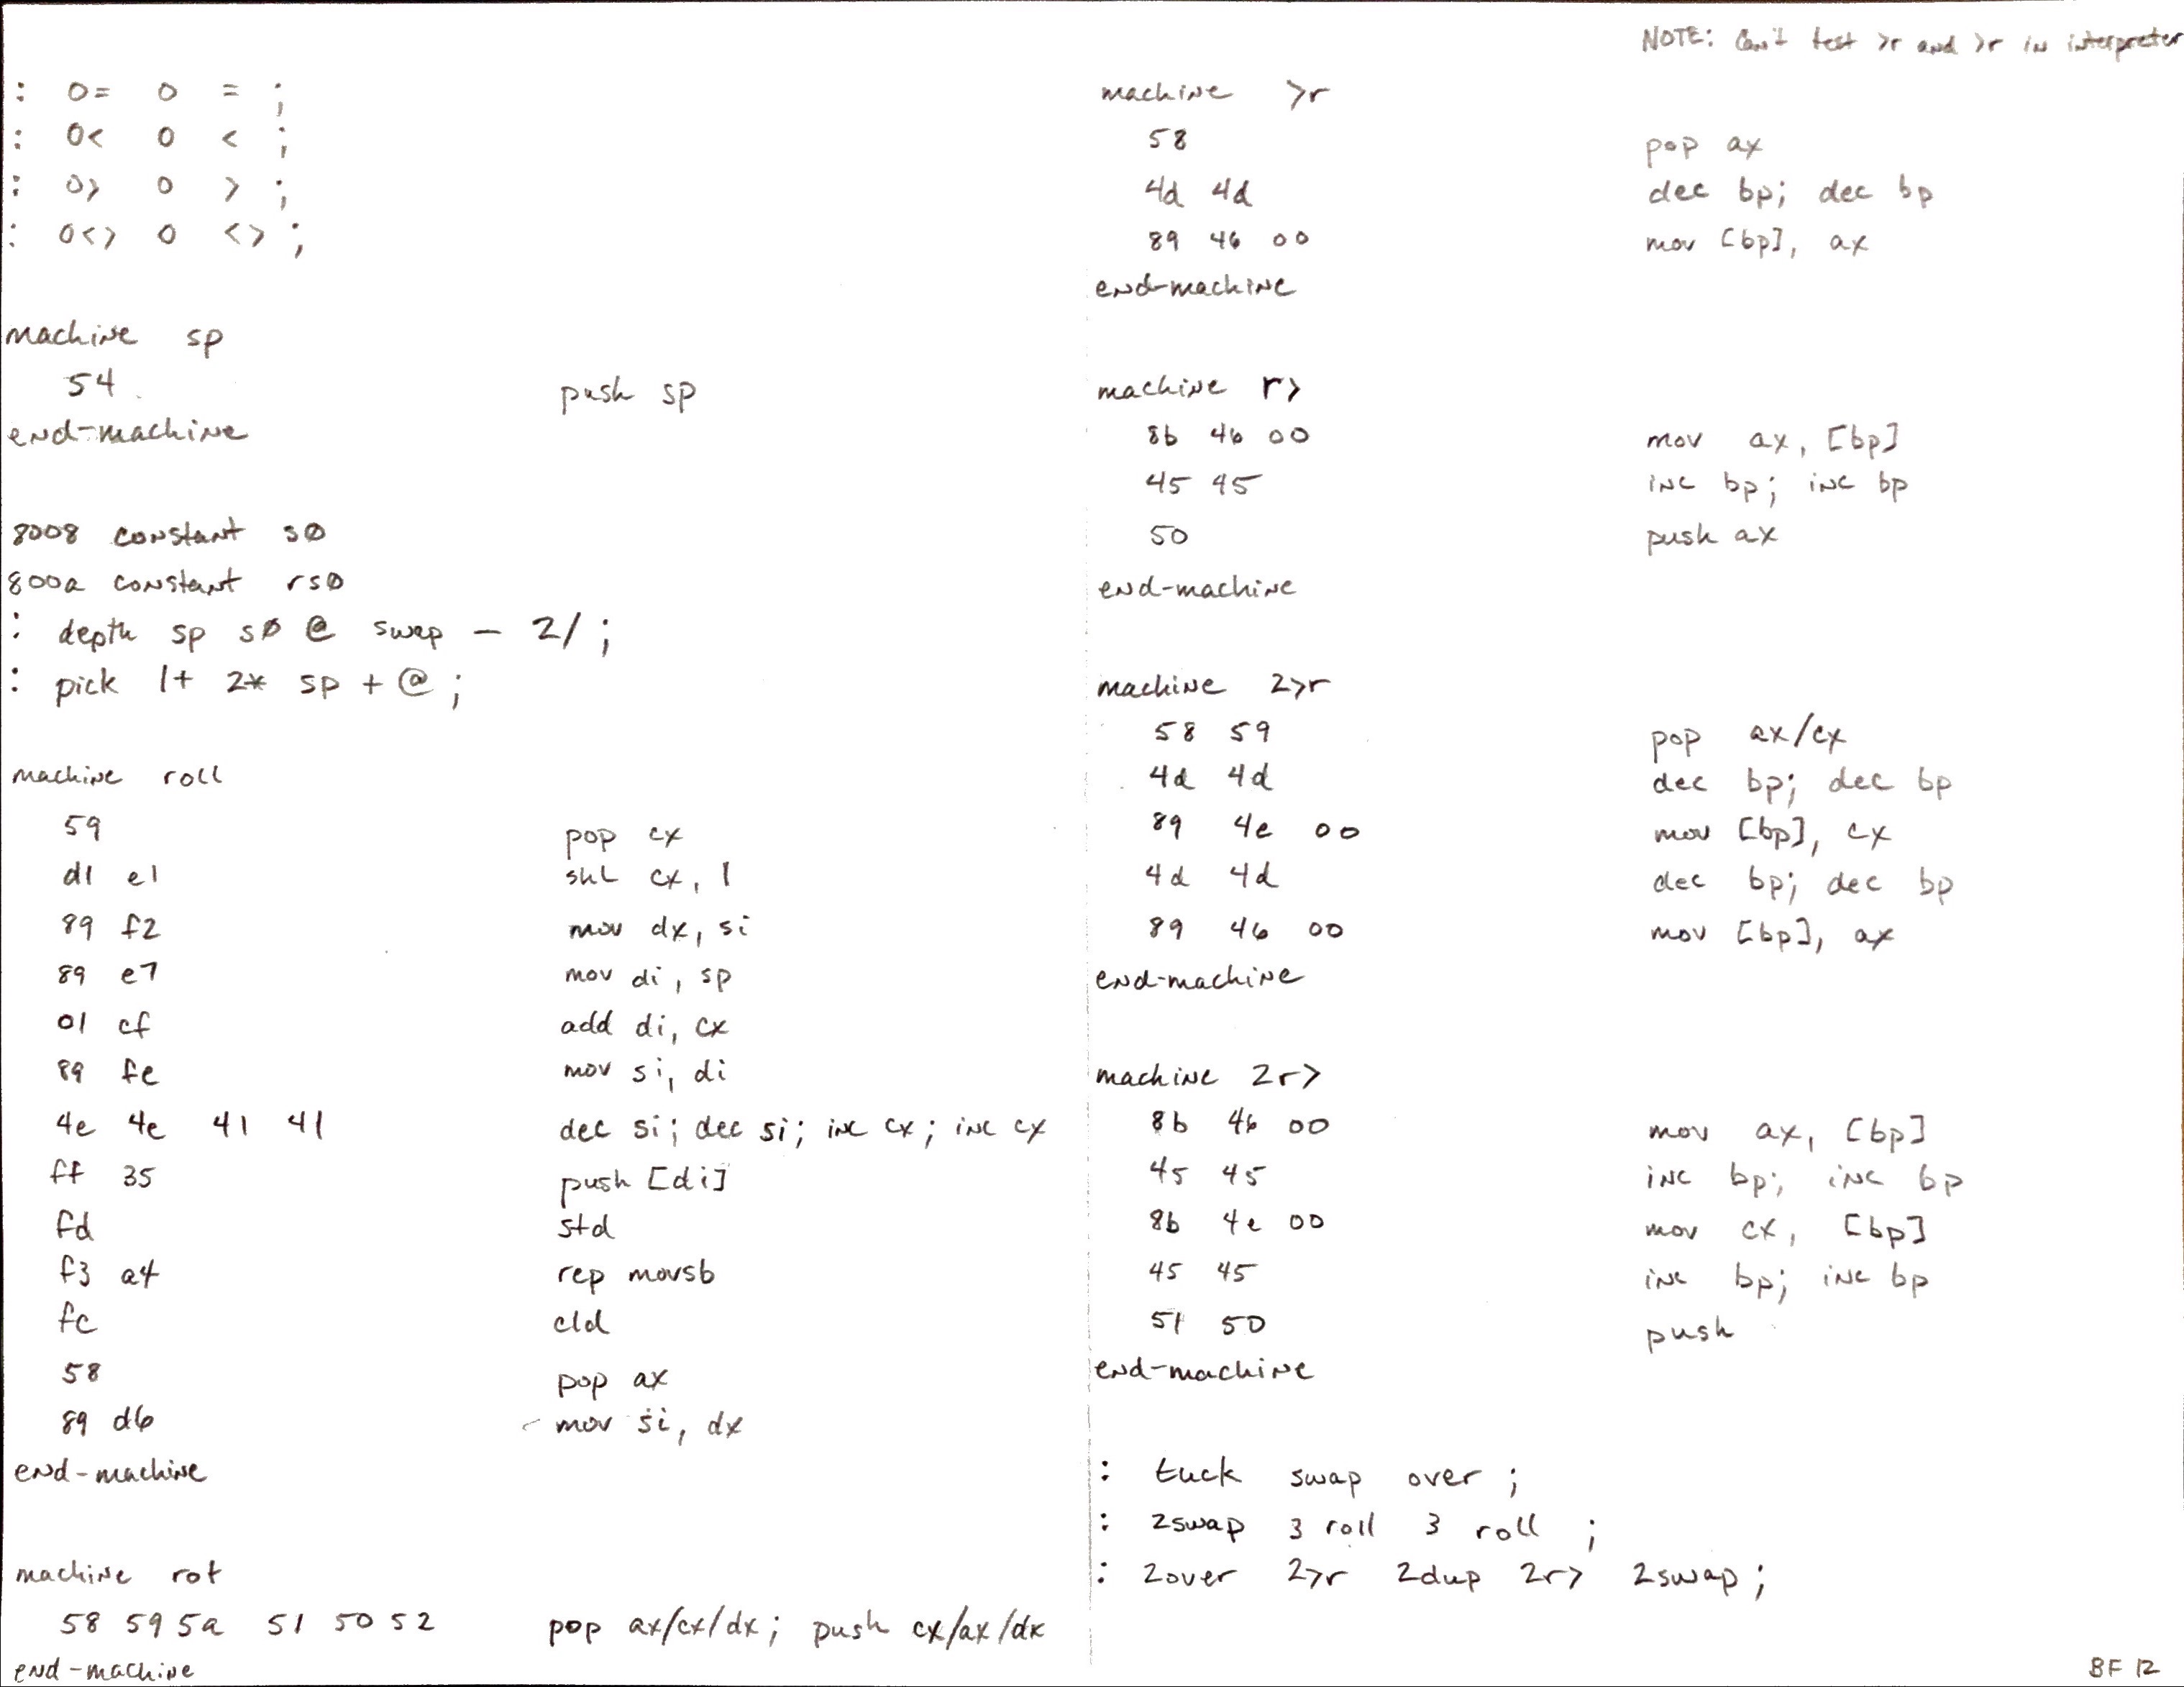 : 0= 0 = ;
: 0< 0 < ;
: 0> 0 > ;
: 0<> 0 <> ;
machine sp
54 push sp
end-machine
8008 constant s0
800a constant rs0
: depth sp s0 @ swap - 2/ ;
: pick 1+ 2* sp + @ ;
machine roll
59 pop cx
d1 e1 shl cx, 1
89 f2 mov dx, si
89 e7 mov di, sp
01 cf add di, cx
89 fe mov si, di
4e 4e 41 41 dec si; dec si; inc cx; inc cx
ff 35 push [di]
fd std
f3 a4 rep movsb
fc cld
58 pop ax
89 d6 mov si, dx
end-machine
machine rot
58 59 5a 51 50 52 pop ax/cx/dx; push cx/ax/dx
end-machine
NOTE: Can't test >r and >r in interpreter
machine >r
58 pop ax
4d 4d dec bp; dec bp
89 46 00 mov [bp], ax
end-machine
machine r>
8b 46 00 mov ax, [bp]
45 45 inc bp; inc bp
50 push ax
end-machine
machine 2>r
58 59 pop ax/cx
4d 4d dec bp; dec bp
89 4e 00 mov [bp], cx
4d 4d dec bp; dec bp
89 46 00 mov [bp], ax
end-machine
machine 2r>
8b 46 00 mov ax, [bp]
45 45 inc bp; inc bp
8b 4e 00 mov cx, [bp]
45 45 inc bp; inc bp
51 50 push
end-machine
: tuck swap over ;
: 2swap 3 roll 3 roll ;
: 2over 2>r 2dup 2r> 2swap ;
BF 12